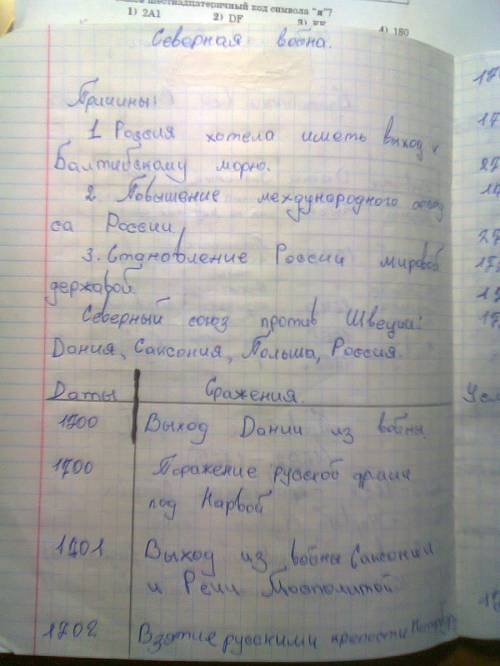 шестнадцатеричный код символа "я"?
1) 2A1
2) DF
4) 180
Северная война.
Причины:
1 Россия хотела иметь выход к
Балтийскому морю.
2. Повышение международного
са России
3. Становление России мировой
державой.
Северный союз против Швеции:
Дания, Саксония, Польша, Россия.
Даты
Сражения.
1700
Выход Дании из войны
1700
Поражение русской
под Нарвой
1701
Выход из войны Саксонии
и Речи Посполитой
1702
Взятие русскими крепости